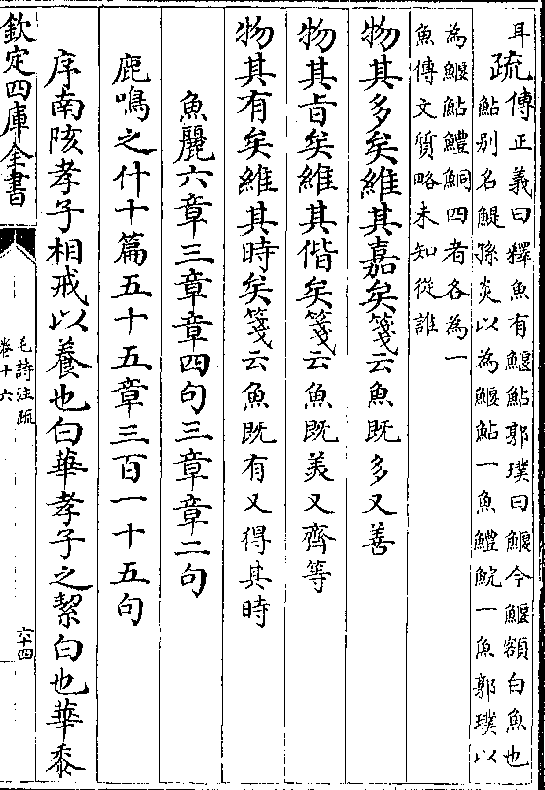 耳
疏傳正義曰釋魚有鰋鮎郭璞曰鰋今鰋額白魚也
鮎别名鯷孫炎以為鰋鮎一魚鱧鯇一魚郭璞以
為鰋鮎鱧鯇四者各為一
魚傳文質略未知從誰
物其多矣維其嘉矣箋云魚既多又善
物其旨矣維其偕矣箋云魚既美又齊等
物其有矣維其時矣箋云魚既有又得其時
魚麗六章三章章四句三章章二句
鹿鳴之什十篇五十五章三百一十五句
序南陔孝子相戒以養也白華孝子之絜白也華黍
欽定四庫全書
毛詩注疏
卷十六
六十四